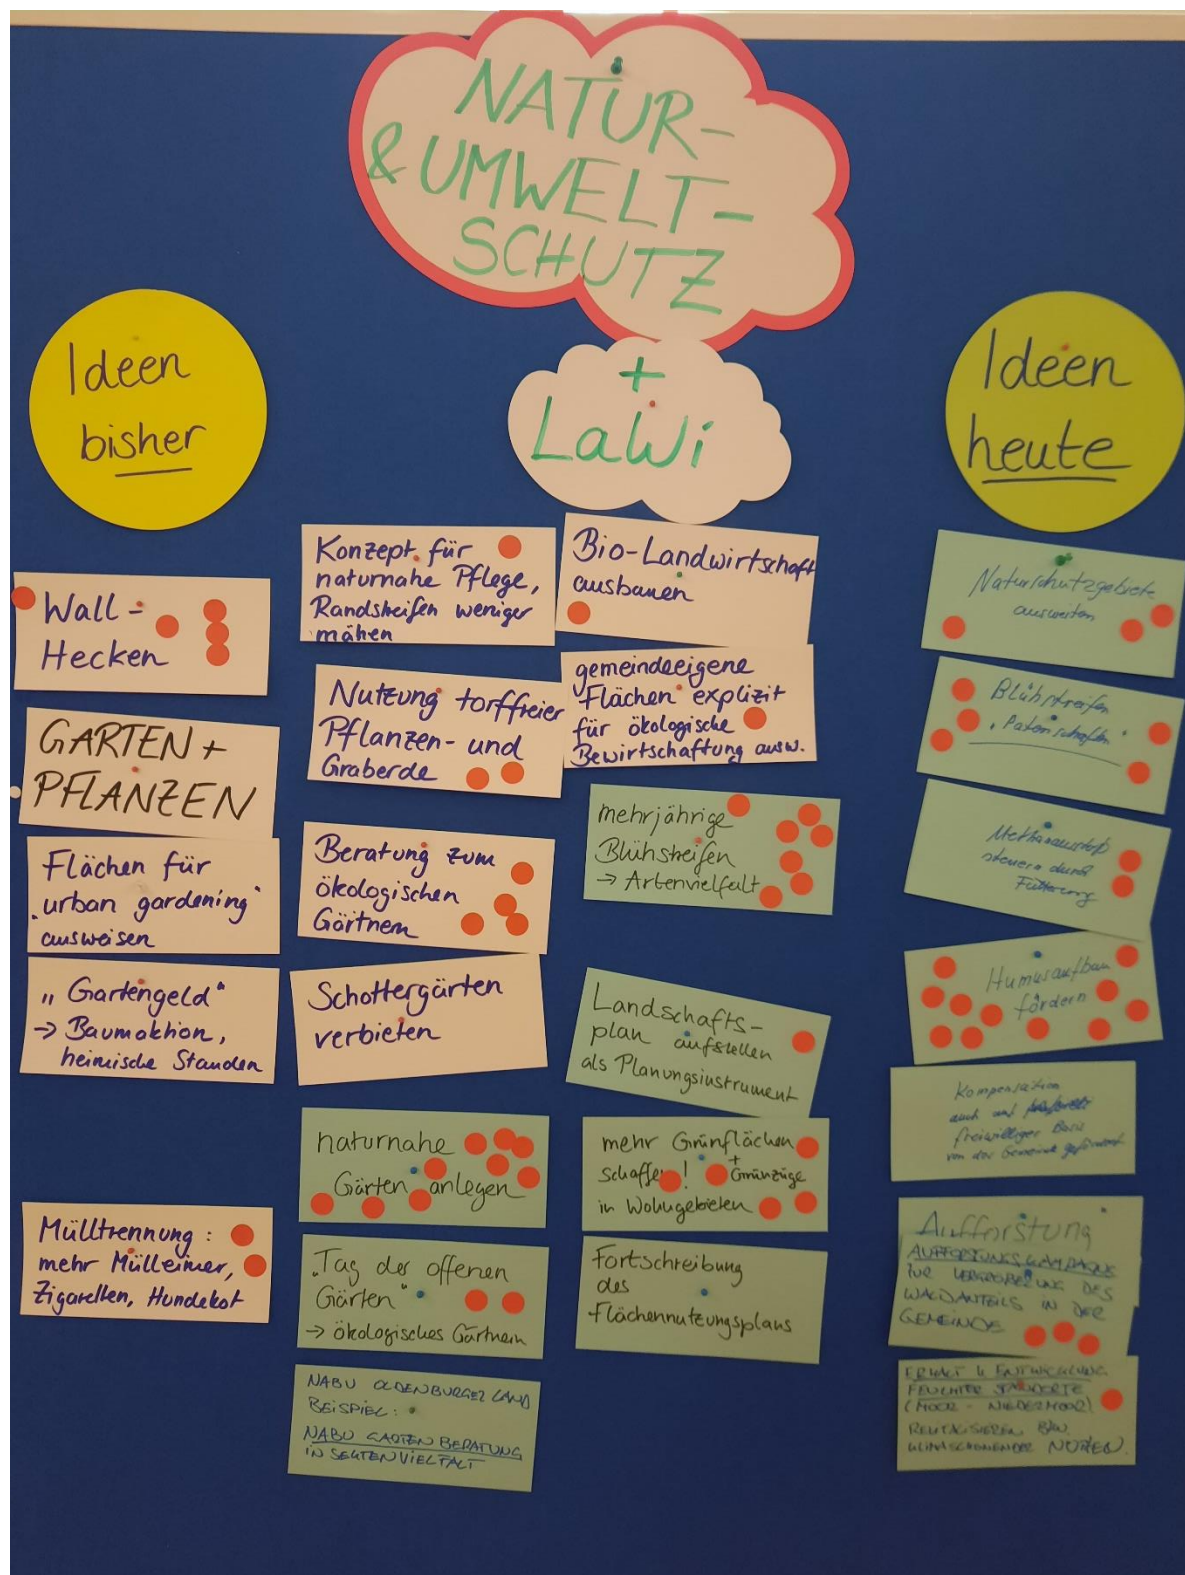 NATUR-
& UMWELT-
SCHUTZ
+
LaWi
Ideen
bisher
Ideen
heute
Wall-
Hecken
GARTEN +
PFLANZEN
Flächen für
„urban gardening"
ausweisen
„Gartengeld"
→ Baumaktion,
heimische Stauden
Mülltrennung:
mehr Mülleimer,
Zigaretten, Hundekot
Konzept für
naturnahe Pflege,
Randstreifen weniger
mähen
Nutzung torffreier
Pflanzen- und
Graberde
Beratung zum
ökologischen
Gärtnern
Schottergärten
verbieten
naturnahe
Gärten anlegen
„Tag der offenen
Gärten"
→ ökologisches Gärtnern
NABU OLDENBURGER LAND
BEISPIEL:
NABU GARTENBERATUNG
IN SEUTENVIELTALT
Bio-Landwirtschaft
ausbauen
gemeindeeigene
Flächen explizit
für ökologische
Bewirtschaftung ausw.
mehrjährige
Blühstreifen
→ Artenvielfalt
Landschafts-
plan aufstellen
als Planungsinstrument
mehr Grünflächen
schaffen! + Grünzüge
in Wohngebieten
Fortschreibung
des
Flächennutzungsplans
Naturschutzgebiete
ausweiten
Blühstreifen
„Patenschaften"
Methanausstoß
steuern durch
Fütterung
Humusaufbau
fördern
Kompensation
auch auf
freiwilliger Basis
von der Gemeinde gefördert
Aufforstung
AUFFORSTUNGSKAMPAGNE
ZUR VERGRÖßERUNG DES
WALDANTEILS IN DER
GEMEINDE
ERHALT & ENTWICKLUNG
FEUCHTER STANDORTE
(MOOR - NIEDERMOOR)
REVITALISIEREN BZW.
KLIMASCHONENDER NUTZEN.